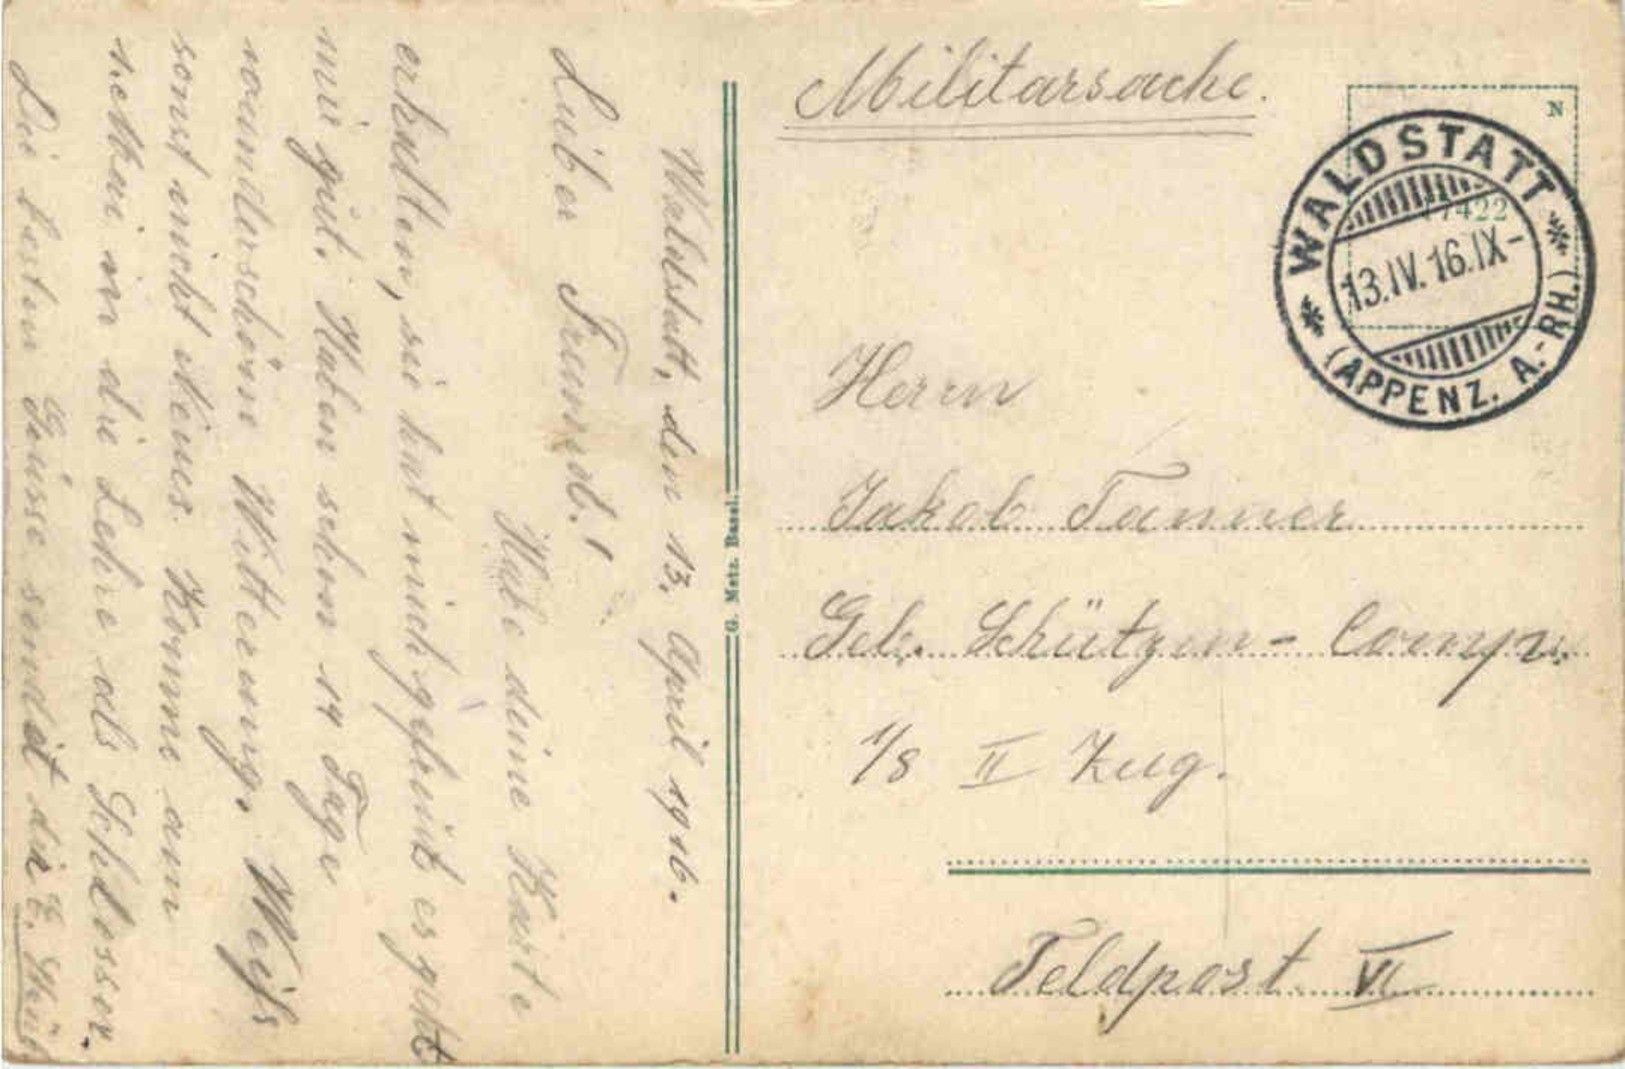 Waldstatt, den 13. April 1916.
Lieber Freund!
Habe deine Karte
erhalten, sie hat mich gefreut es geht
mir gut. Haben schon 14 Tage
wunderschön Witterung. Weiss
sonst nicht Neues. Komme am
in die Lehre als Schlosser.
Die besten Grüsse sendet dir E.
G. Metz. Basel.
Militärsache.
N
17422
WALDSTATT
13.IV.16.IX-
(APPENZ. A.-RH.)
Herrn
Jakob Tanner
Geb. Schützen-Comp.
1/8 II Zug.
Feldpost. VI